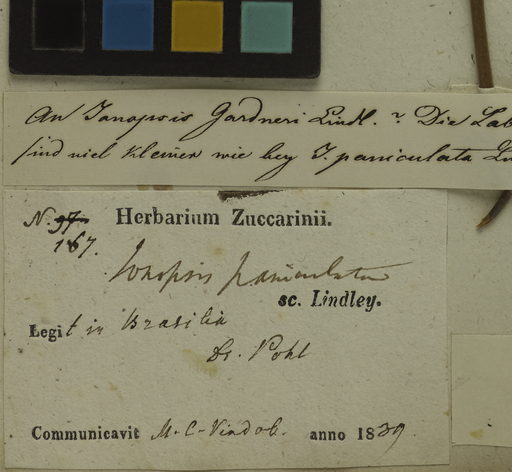 An Jonopsis Gardneri Lindl. ? Die Lab
sind viel kleiner wie bey J. paniculata Lin
N. 97 Herbarium Zuccarinii.
167.
Jonopsis paniculata
sc. Lindley.
Legit in Brasilia
Dr. Pohl
Communicavit M. C. Vindob. anno 1839.